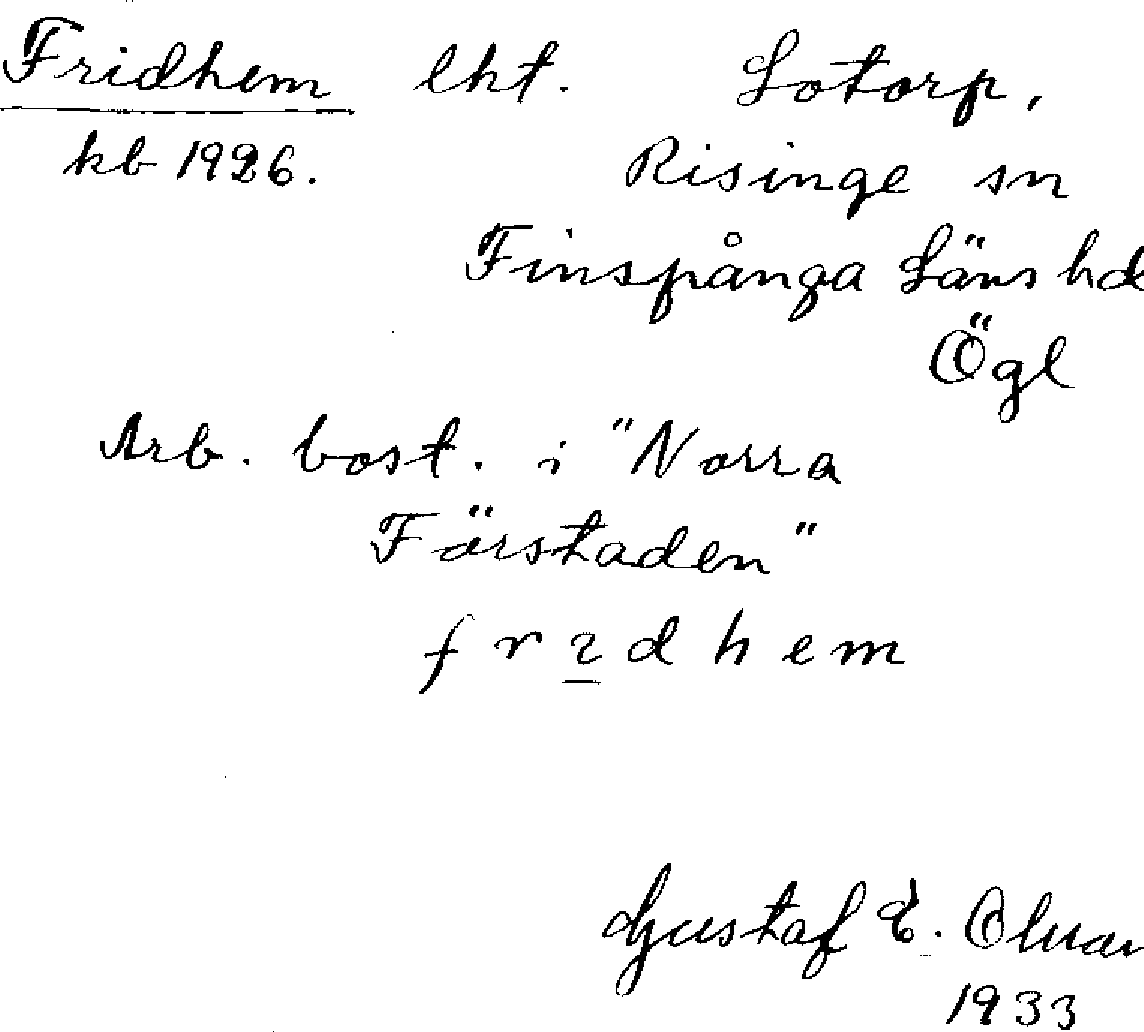 Fridhem lht. Lotorp,
kb 1926. Risinge sn
Finspånga Läns hd
Ögl
Arb. bost. i "Norra
Förstaden"
frıdhem
Gustaf E.
1933